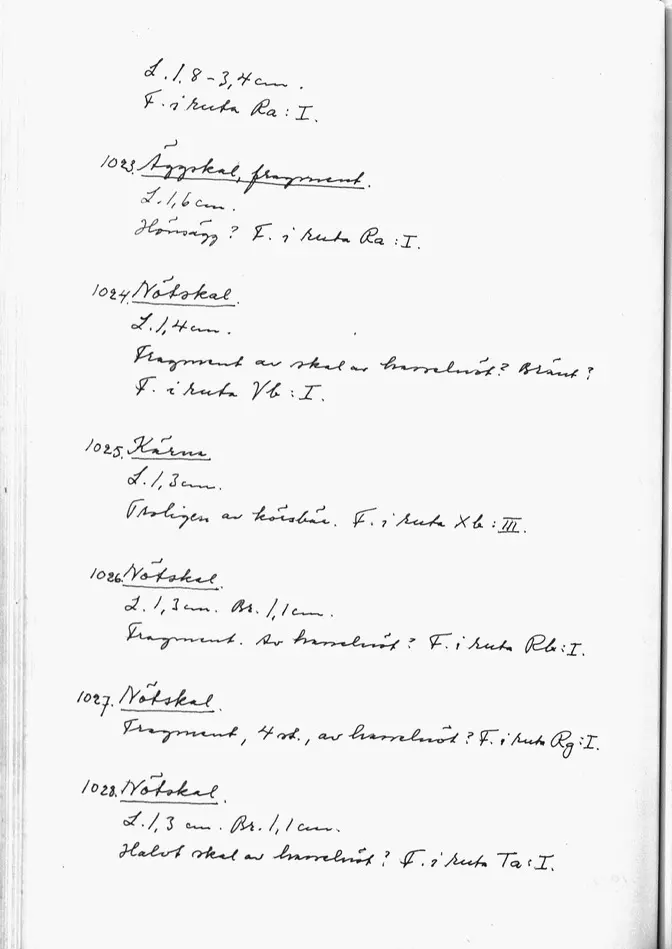 L. 1,8 - 3,4 cm.
F. i ruta Ra : I.
1023. Äggskal, fragment.
L. 1,6 cm.
Hönsägg? F. i ruta Ra : I.
1024. Nötskal.
L. 1,4 cm.
Fragment av skal av hasselnöt? Bränt?
F. i ruta Vb : I.
1025. Kärna
L. 1,3 cm.
Troligen av körsbär. F. i ruta Xb : III.
1026. Nötskal.
L. 1,3 cm. Br. 1,1 cm.
Fragment. Av hasselnöt? F. i ruta Rb : I.
1027. Nötskal.
Fragment, 4 st., av hasselnöt? F. i ruta Rg : I.
1028. Nötskal.
L. 1,3 cm. Br. 1,1 cm.
Halvt skal av hasselnöt? F. i ruta Ta : I.